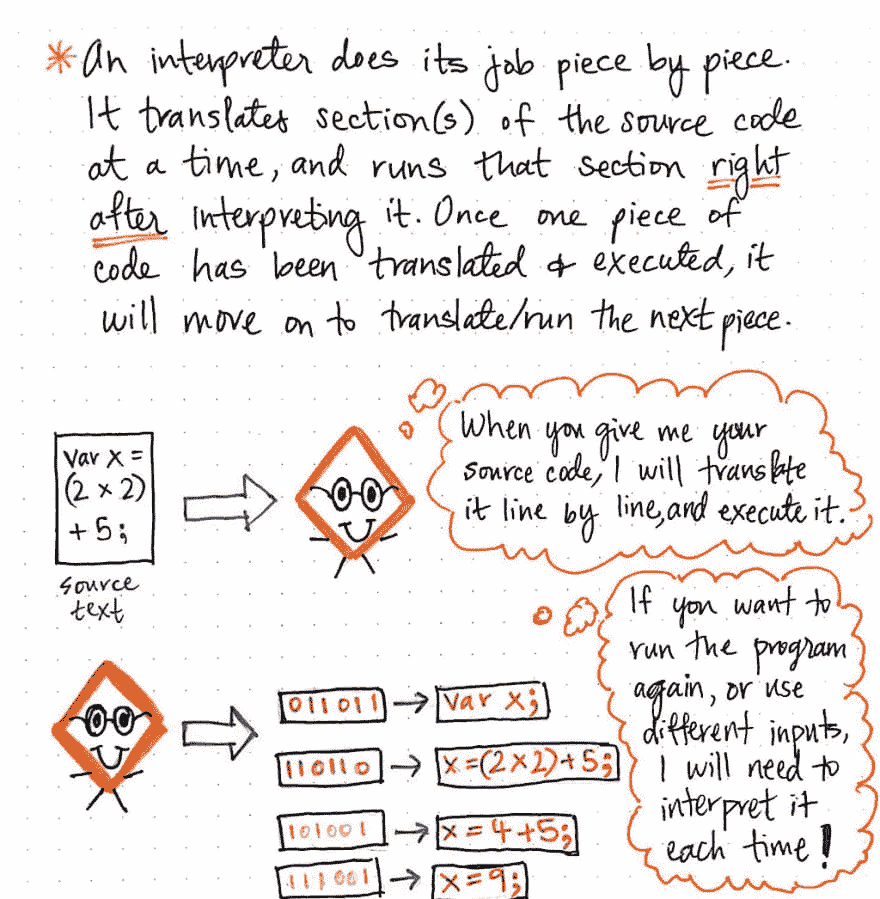 * An interpreter does its job piece by piece.
It translates section(s) of the source code
at a time, and runs that section right
after interpreting it. Once one piece of
code has been translated & executed, it
will move on to translate/run the next piece.
var x =
(2 x 2)
+ 5;
source
text
When you give me your
source code, I will translate
it line by line, and execute it.
If you want to
run the program
again, or use
different inputs,
I will need to
interpret it
each time!
011011 → var x;
110110 → x=(2x2)+5;
101001 → x = 4+5;
111001 → x=9;